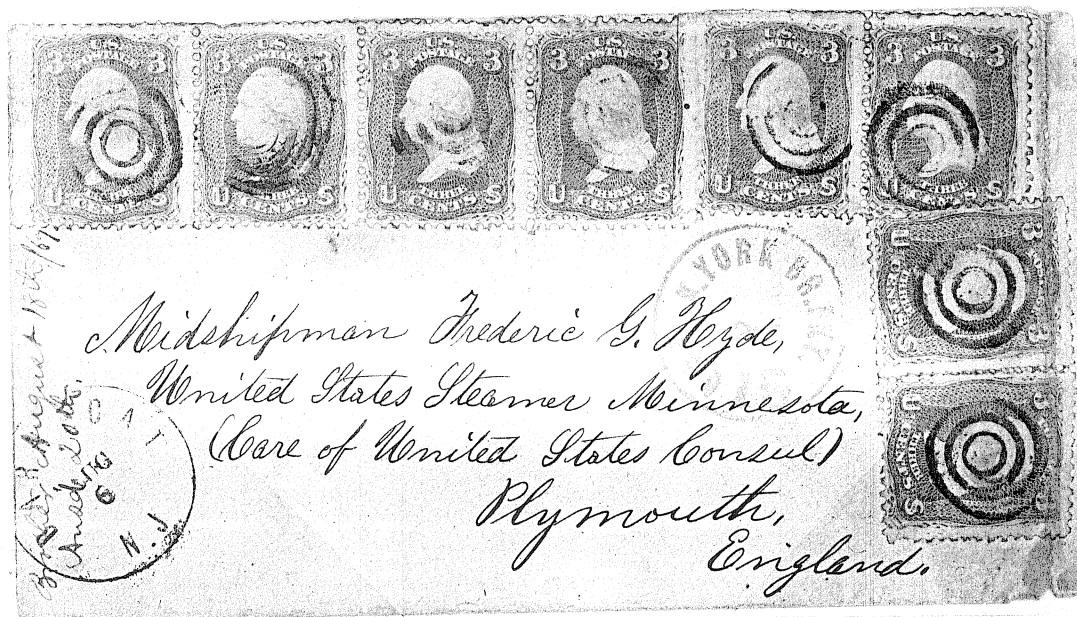 3 U.S. POSTAGE 3
U THREE CENTS S
3 U.S. POSTAGE 3
U THREE CENTS S
3 U.S. POSTAGE 3
U THREE CENTS S
3 U.S. POSTAGE 3
U THREE CENTS S
3 U.S. POSTAGE 3
U THREE CENTS S
3 U.S. POSTAGE 3
U THREE CENTS S
N. YORK BR. PKT
Midshipman Frederic G. Hyde,
United States Steamer Minnesota,
(Care of United States Consul)
Plymouth,
England.
August 18th/67
20th.
6
N.J